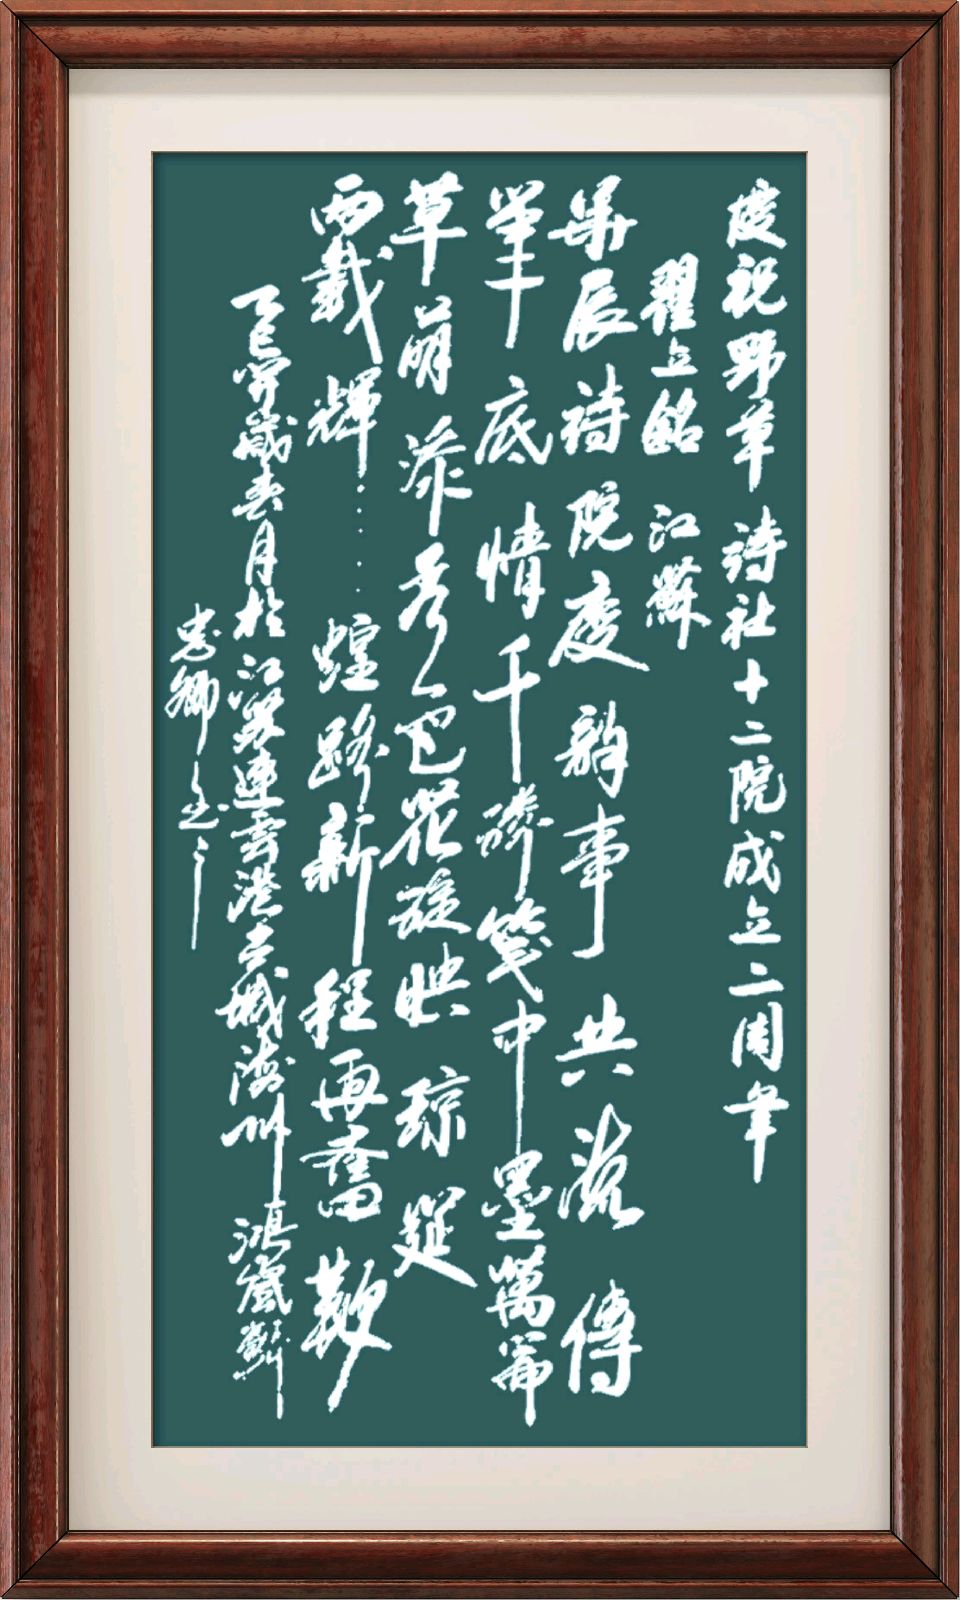 慶祝野草詩社十二院成立二周年
翟立銘 江蘇
華辰詩院慶韻事共流傳
筆下底情千磅箋中墨萬篇
草萌添秀色花旋映琼筵
兩載輝……煌路新程再奮鞭
乙巳 歲春月於江蘇連雲港 城海州 鴻 
書鄉